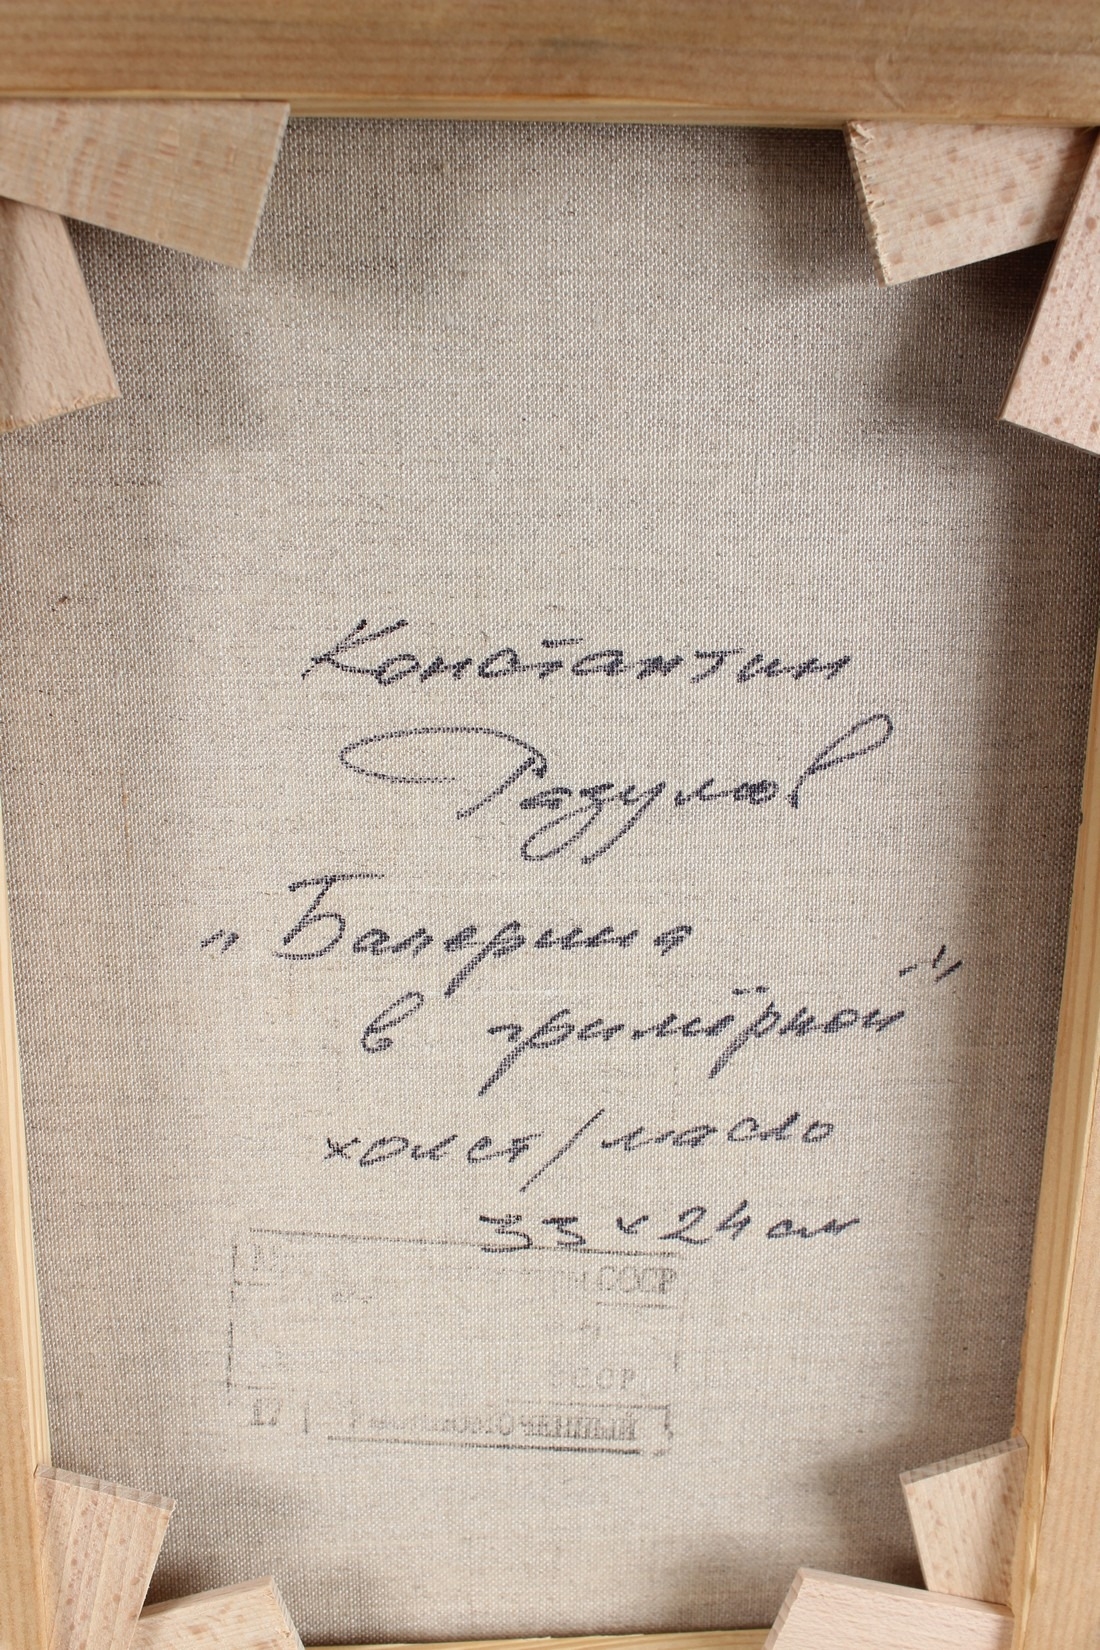 Константин
Разумов
"Балерина
в гримёрной"
холст/масло
33 x 24 см
СССР
СССР
17